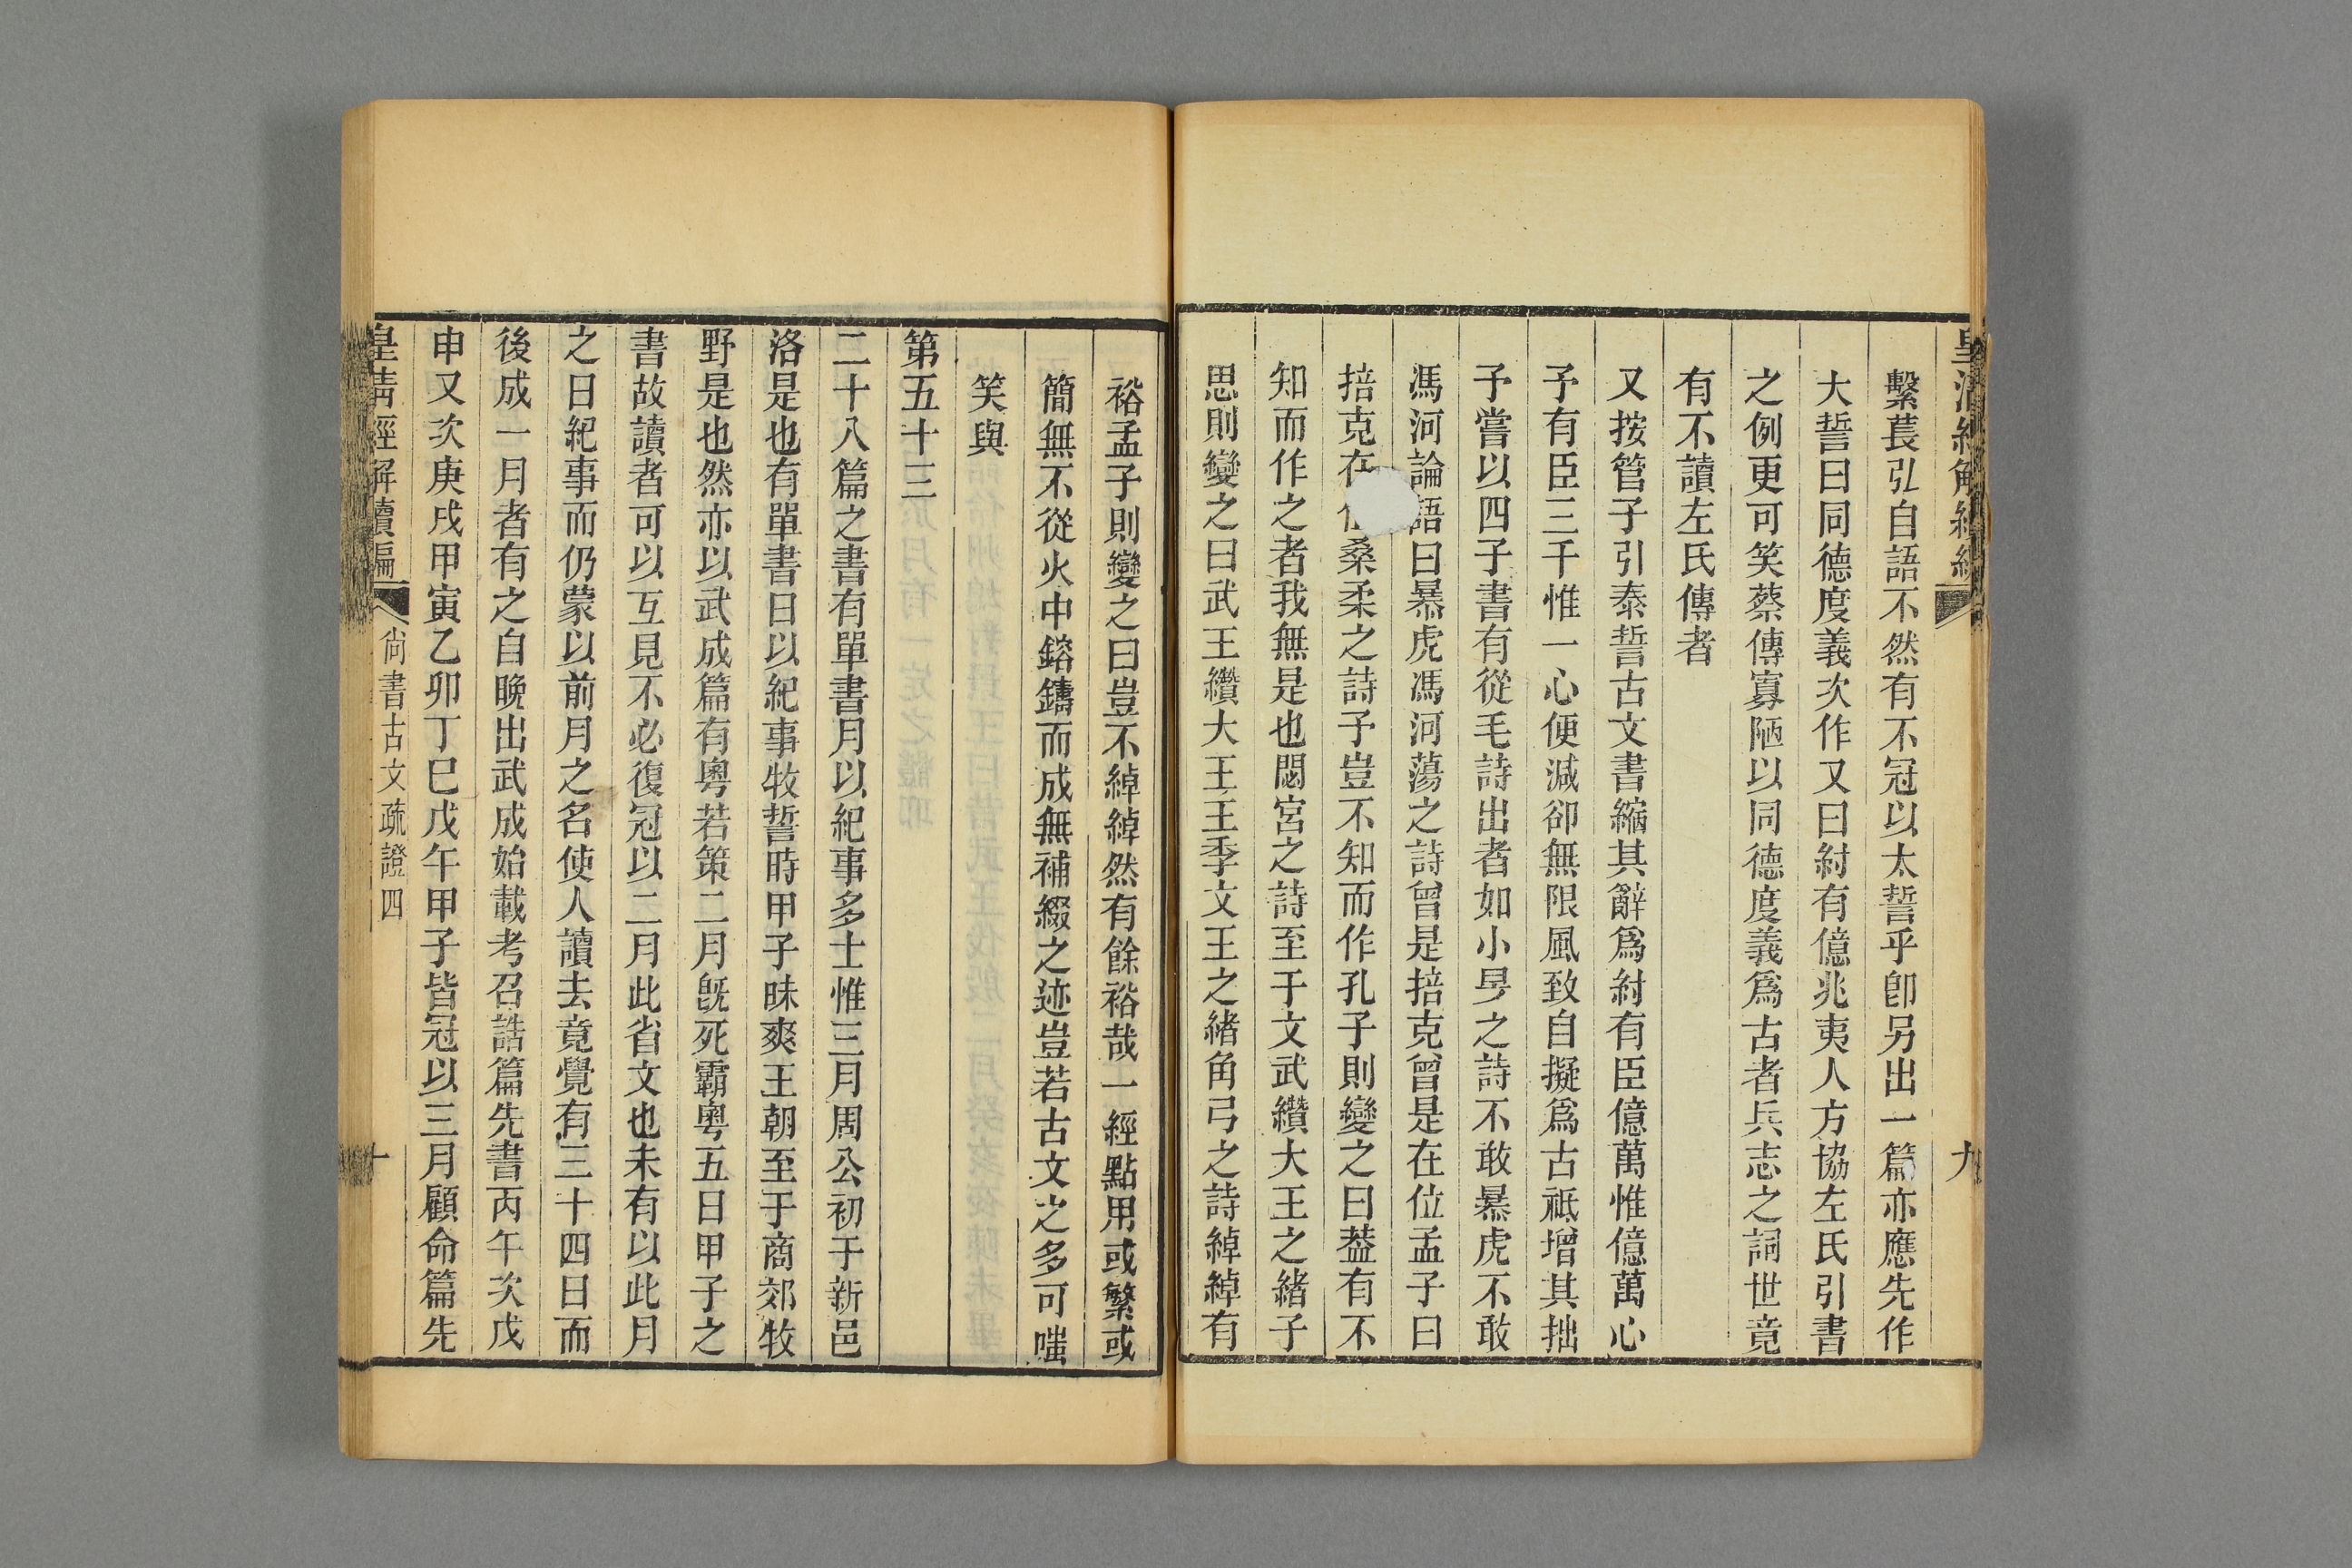 繫萇弘自語不然有不冠以太誓乎卽另出一篇亦應先作
大誓曰同德度義次作又曰紂有億兆夷人方協左氏引書
之例更可笑蔡傳寡陋以同德度義爲古者兵志之詞世竟
有不讀左氏傳者
又按管子引泰誓古文書縮其辭爲紂有臣億萬惟億萬心
予有臣三千惟一心便減卻無限風致自擬爲古祗增其拙
予嘗以四子書有從毛詩出者如小旻之詩不敢暴虎不敢
馮河論語曰暴虎馮河蕩之詩曾是掊克曾是在位孟子曰
掊克在桑柔之詩予豈不知而作孔子則變之曰葢有不
知而作之者我無是也閟宮之詩至于文武纘大王之緒子
思則變之曰武王纘大王王季文王之緒角弓之詩綽綽有
九
裕孟子則變之曰豈不綽綽然有餘裕哉一經點用或繁或
簡無不從火中鎔鑄而成無補綴之迹豈若古文之多可嗤
笑與
第五十三
二十八篇之書有單書月以紀事多士惟三月周公初于新邑
洛是也有單書日以紀事牧誓時甲子昧爽王朝至于商郊牧
野是也然亦以武成篇有粵若策二月旣死霸粵五日甲子之
書故讀者可以互見不必復冠以二月此省文也未有以此月
之日紀事而仍蒙以前月之名使人讀去竟覺有三十四日而
後成一月者有之自晚出武成始載考召誥篇先書丙午次戊
申又次庚戌甲寅乙卯丁巳戊午甲子皆冠以三月顧命篇先
皇清經解續編 尚書古文疏證四